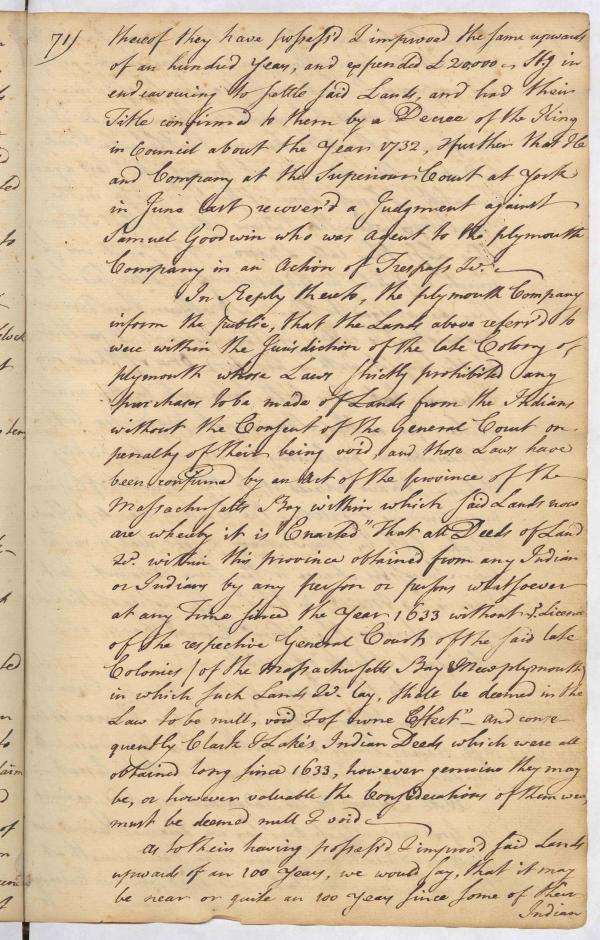 71)
thereof they have possess'd & improved the same upwards
of an hundred Years, and expended £20,000 Stg in
endeavouring to settle said Lands, and had their
Title confirmed to them by a Decree of the King
in Council about the Year 1732, & further that He
and Company at the Superiour Court at York
in June last recover'd a Judgment against
Samuel Goodwin who was Agent to the plymouth
Company in an Action of Trespass &c.
In Reply thereto, the plymouth Company
inform the public, that the Lands above referr'd to
were within the Jurisdiction of the late Colony of
plymouth whose Laws strictly prohibited any
purchases to be made of Lands from the Indians
without the Consent of the General Court on
penalty of their being void, and those Laws have
been confirmed by an Act of the province of the
Massachusetts Bay within which said Lands now
are whereby it is "Enacted" That all Deeds of Land
&c. within this province obtained from any Indian
or Indians by any person or persons whatsoever
at any Time since the Year 1633 without ye. Licence
of the respective General Courts of the said late
Colonies (of the Massachusetts Bay & New plymouth
in which such Lands &c. lay, shall be deemed in the
Law to be null, void & of none Effect" – and conse-
quently Clark & Lake's Indian Deeds which were all
obtained long since 1633, however genuine they may
be, or however valuable the Considerations of them were,
must be deemed null & void
As to their having possess'd & improv'd said Lands
upwards of an 100 Years, we would say, that it may
be near or quite an 100 Years since some of their
Indian